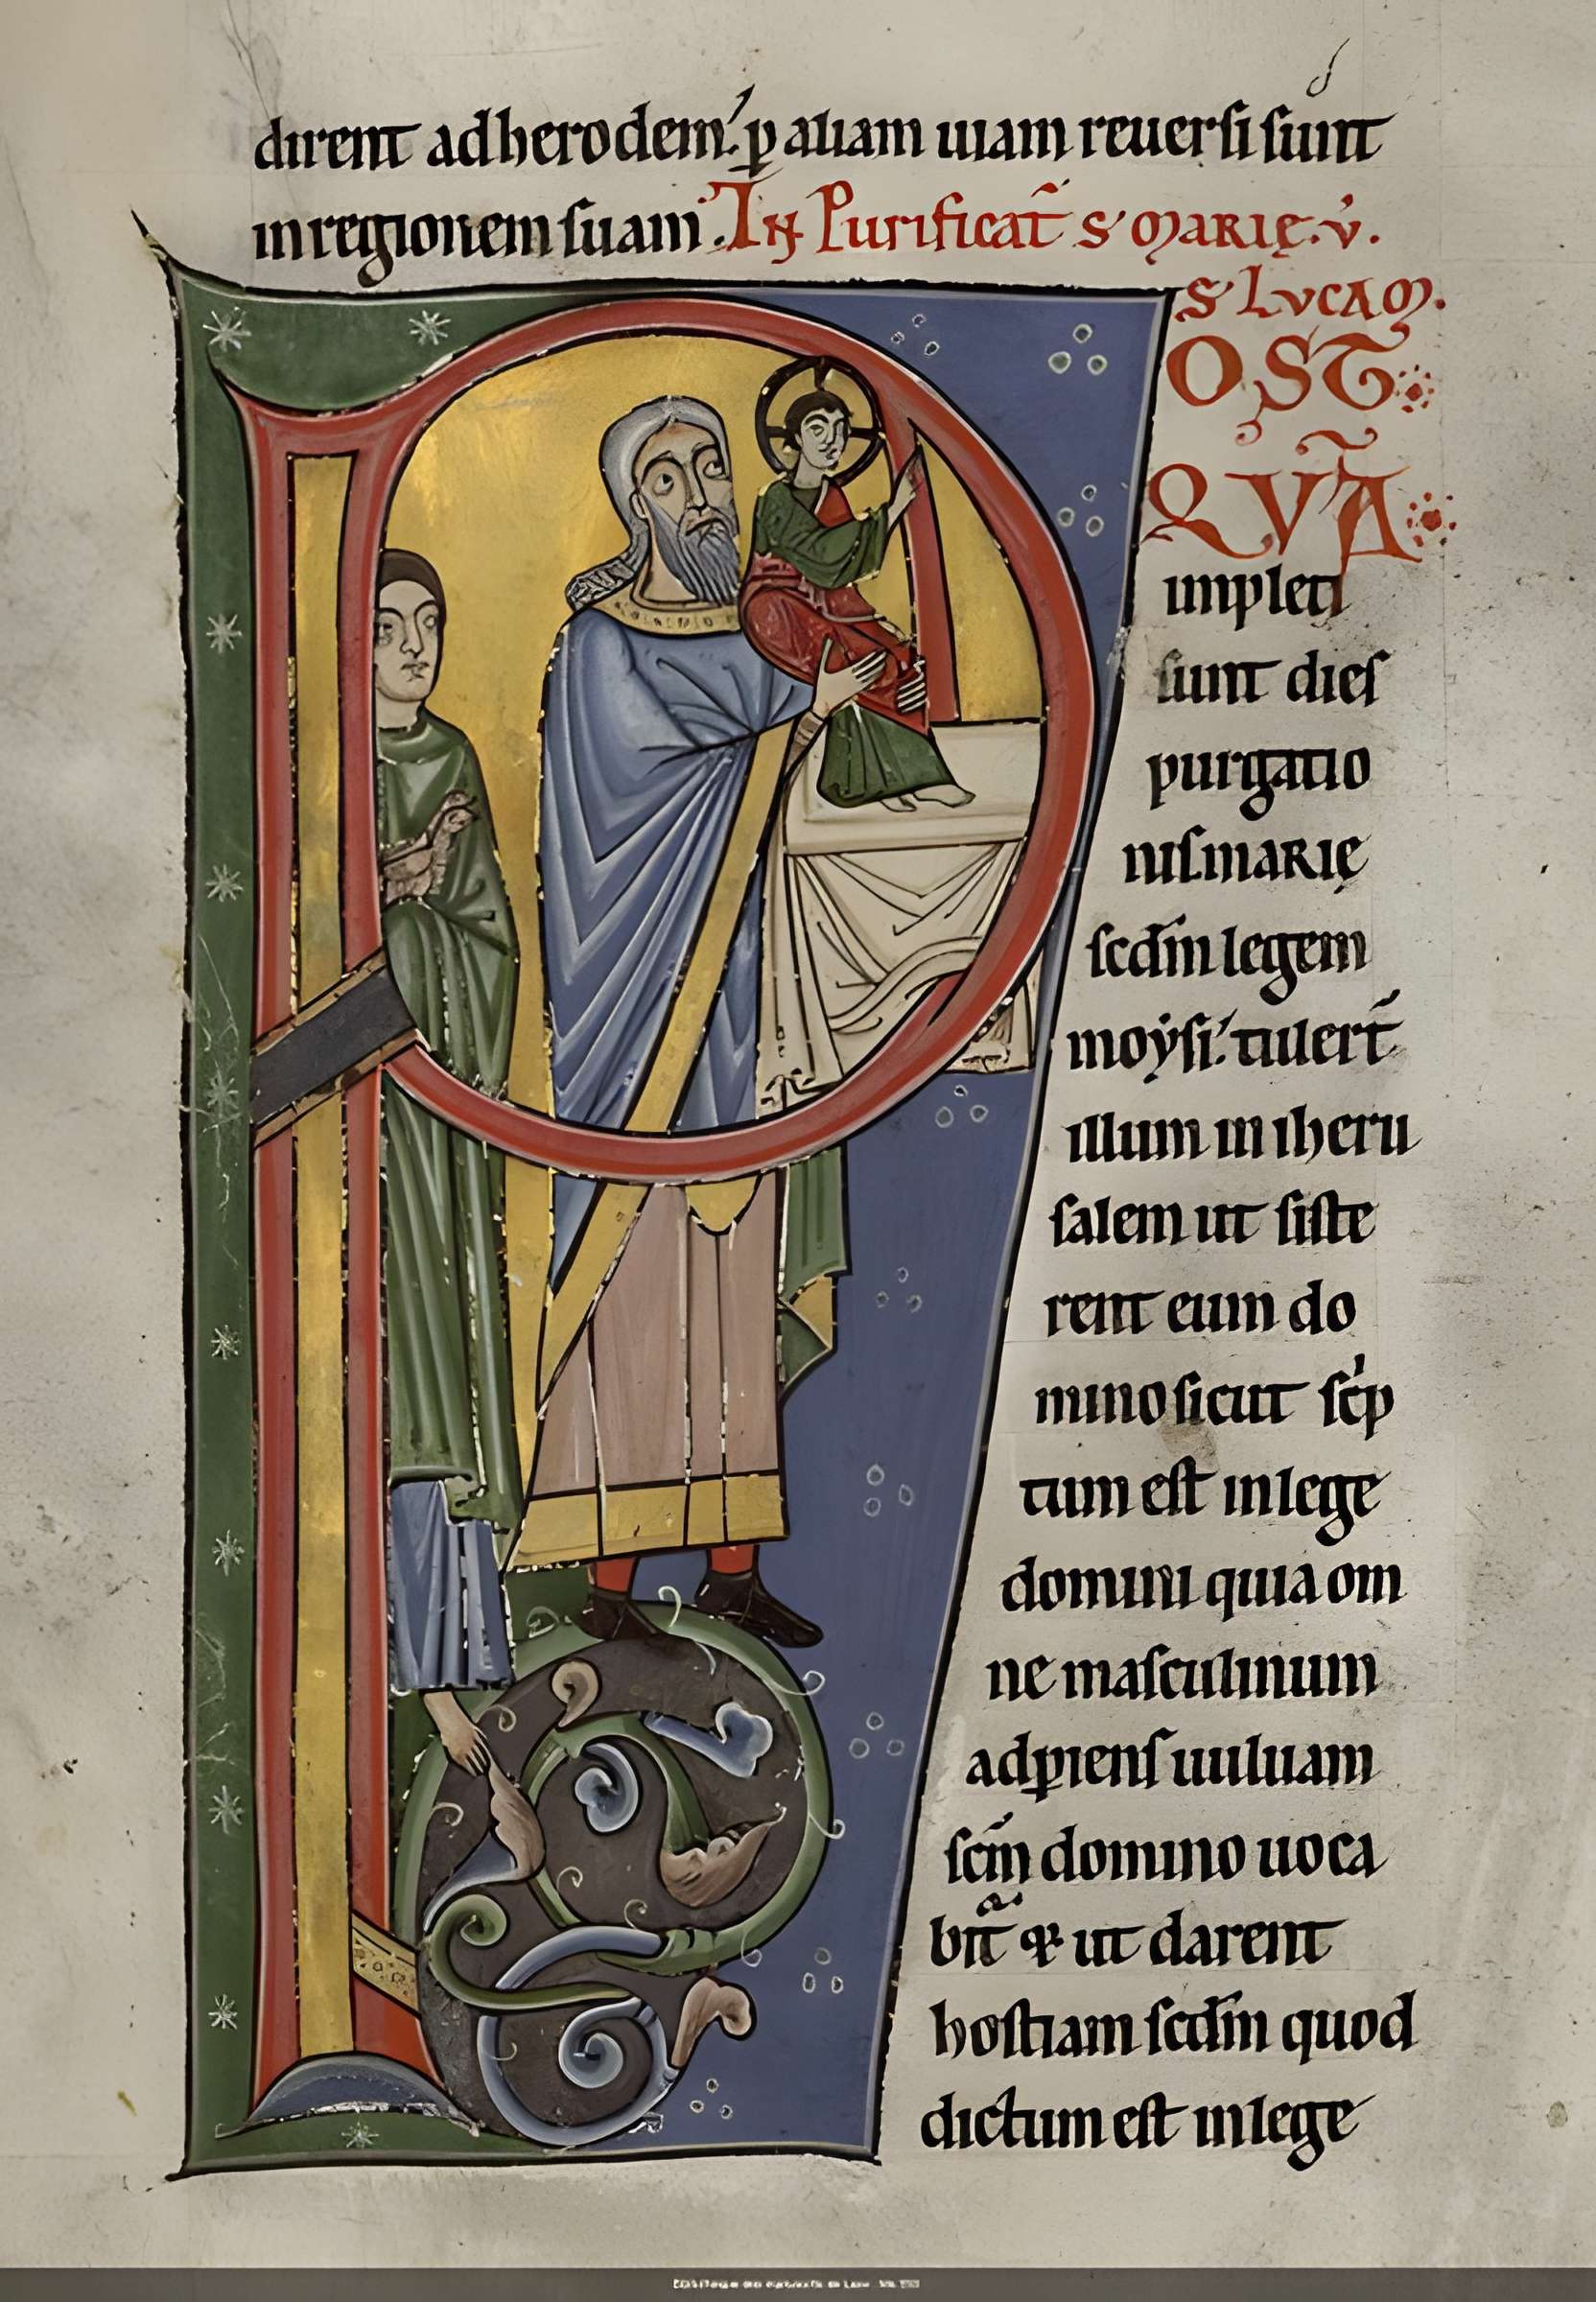 dirent ad herodem. ꝑ aliam uiam reuersi sunt
in regionem suam. IN Purificat̄ S MARIĘ. V̓.
S LVCAM.
P OST
QVĀ
impleti
sunt dies
purgatio
nis MARIĘ
scd̄m legem
moẏsi. tulert̄
illum in iheru
salem ut siste
rent eum do
mino sicut sc̓p
tum est in lege
domini quia om
ne masculinum
adꝑiens uuluam
scm̄ domino uoca
bit̄ & ut darent
hostiam scd̄m quod
dictum est in lege